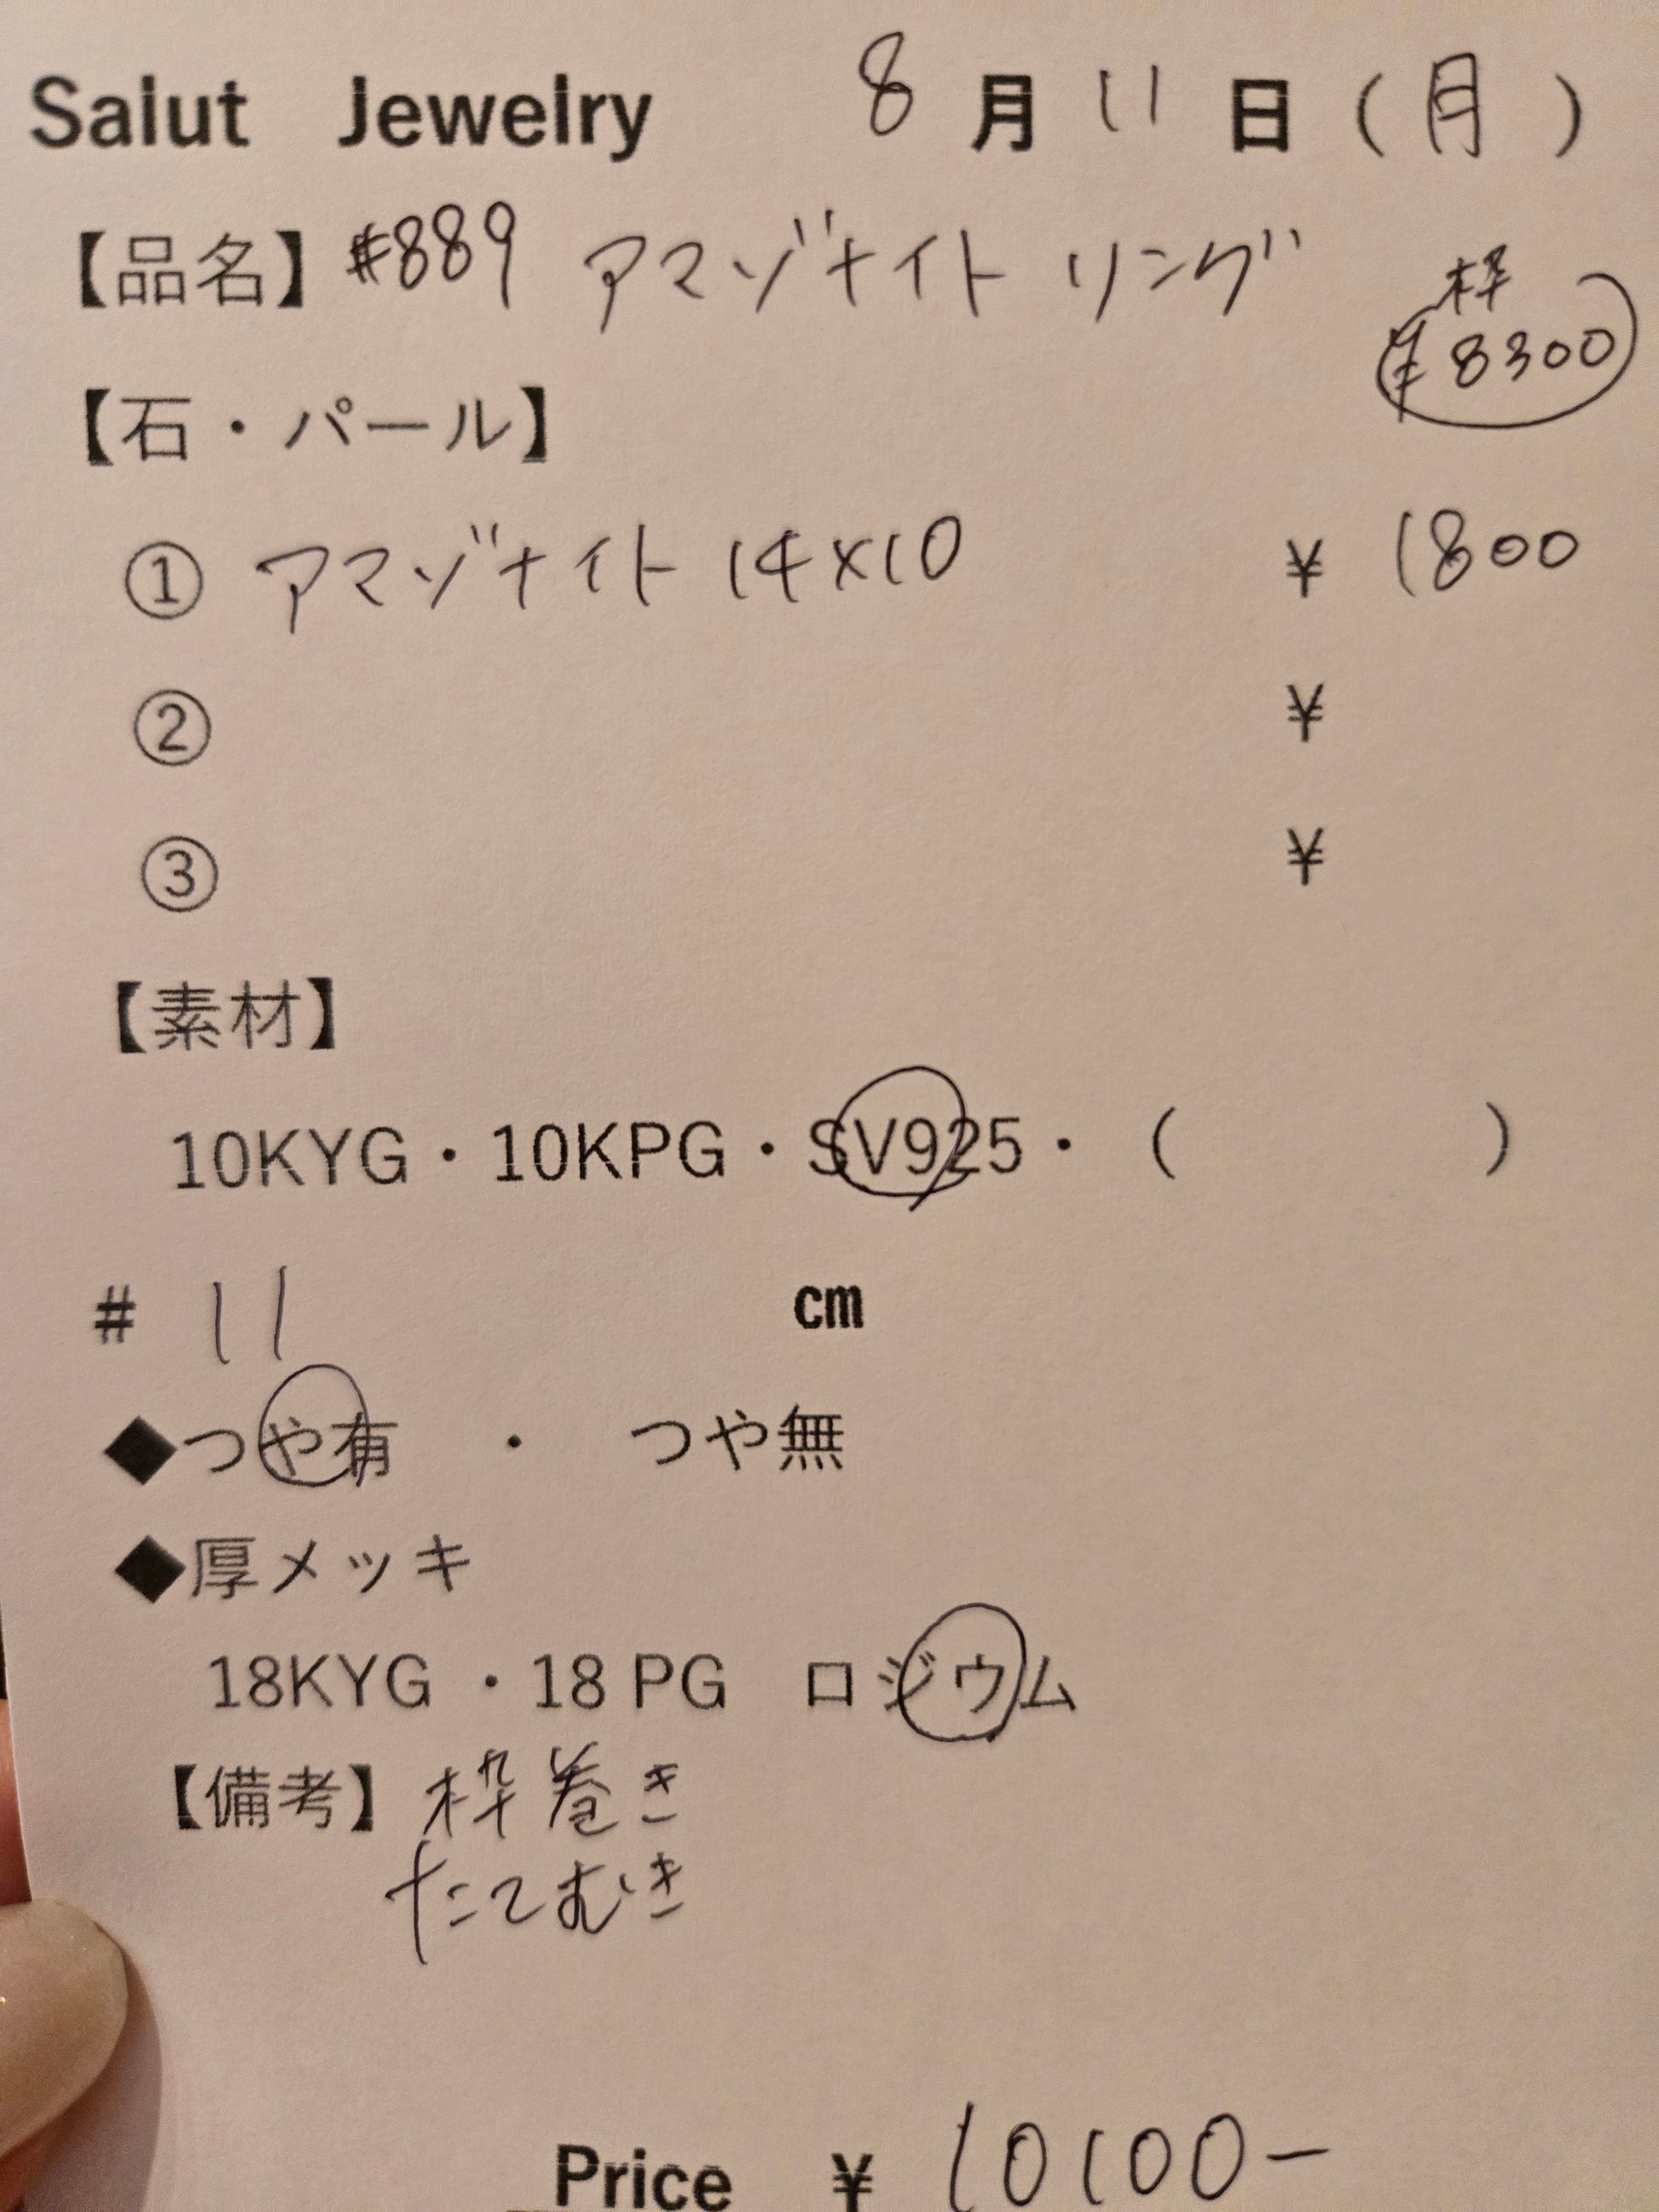 Salut Jewelry 8月11日(月)
【品名】#889 アマゾナイト リング
枠
¥8300
【石・パール】
① アマゾナイト 14×10 ¥1800
② ¥
③ ¥
【素材】
10KYG・10KPG・SV925・( )
# 11 cm
◆つや有 ・ つや無
◆厚メッキ
18KYG ・18 PG ロジウム
【備考】枠巻き
たてむき
Price ¥ 10100-